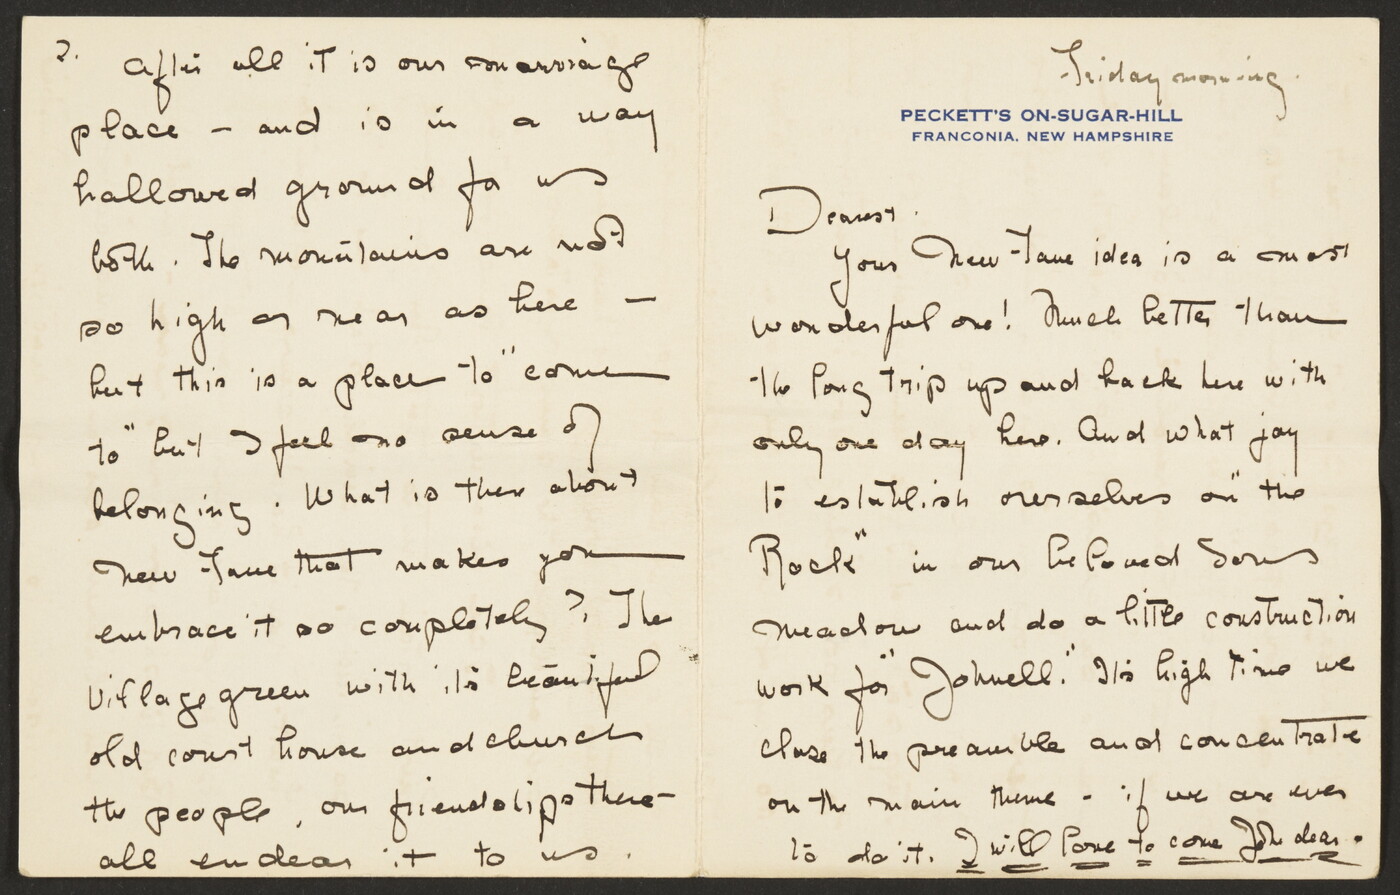 Friday morning.
PECKETT'S ON-SUGAR-HILL
FRANCONIA, NEW HAMPSHIRE
Dearest.
Your New-fane idea is a most
wonderful one! Much better than
the long trip up and back here with
only one day here. And what joy
to establish ourselves on "the
Rock" in our beloved
meadow and do a little construction
work for "Johnell." It's high time we
close the preamble and concentrate
on the main theme - if we are ever
to do it. I will love to come John dear.
2. After all it is our marriage
place - and is in a way
hallowed ground for us
both. The mountains are not
so high or near as here -
but this is a place to "come
to" but I feel no sense of
belonging. What is there about
New-fane that makes you
embrace it so completely? The
village green with its beautiful
old court house and church
the people, our friendships there -
all endear it to us.